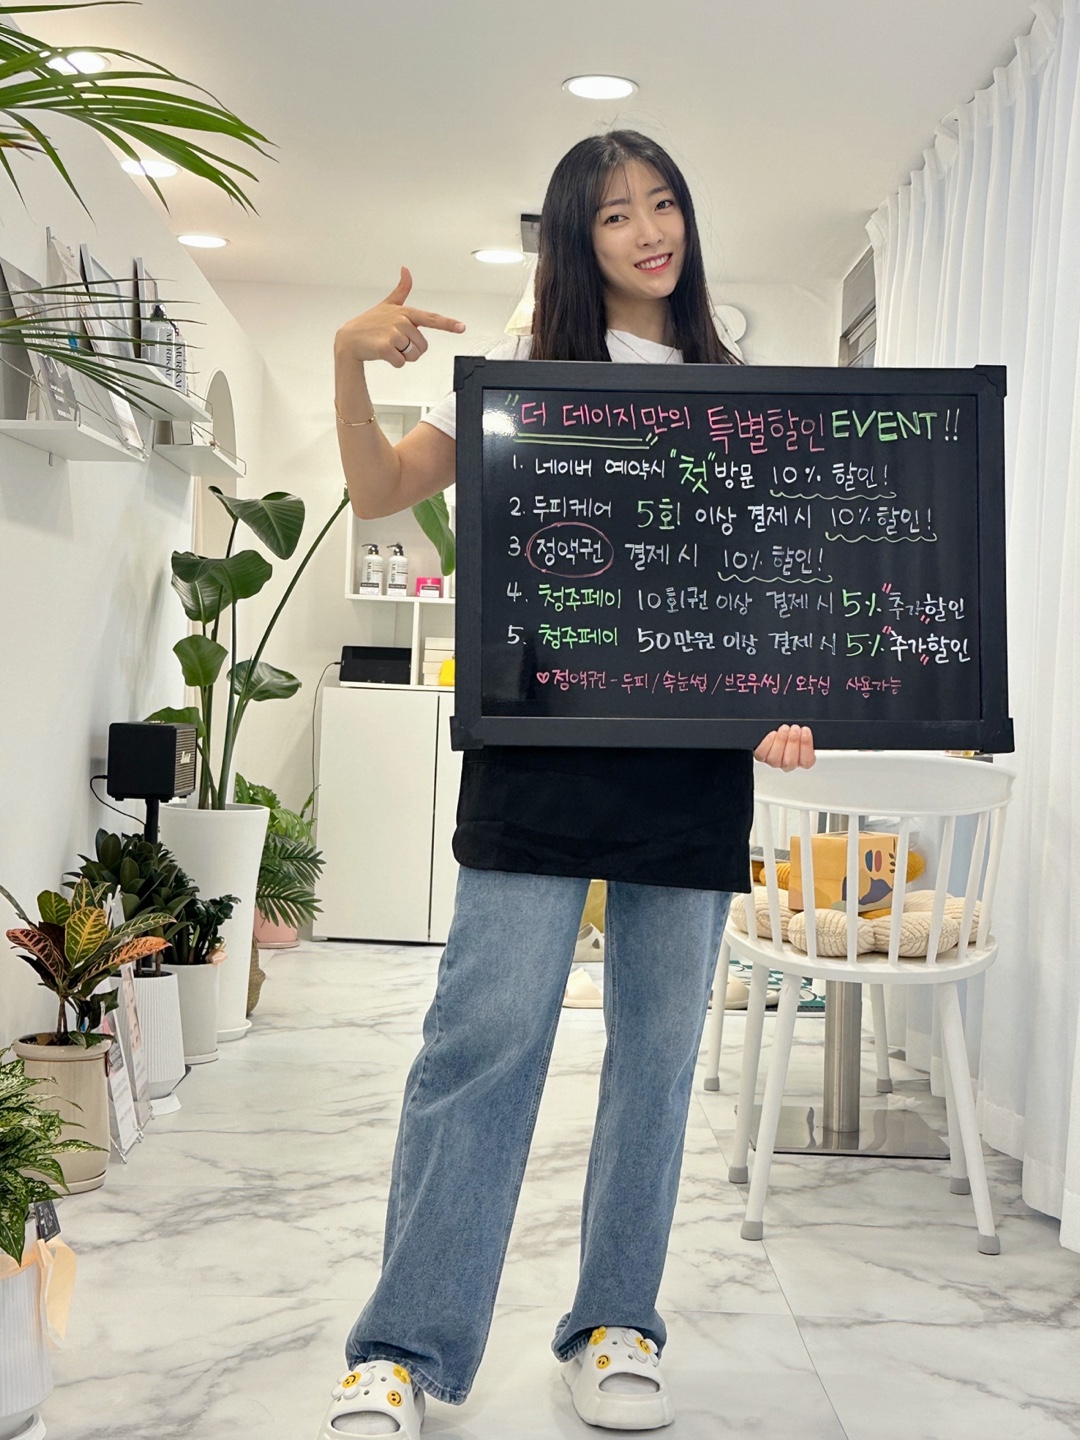 "더 데이지만의 특별할인 EVENT!!
1. 네이버 예약시 "첫" 방문 10% 할인!
2. 두피케어 5회 이상 결제시 10% 할인!
3. 정액권 결제 시 10% 할인!
4. 청주페이 10회권 이상 결제 시 5% "추가"할인
5. 청주페이 50만원 이상 결제 시 5% "추가"할인
♡정액권 - 두피/속눈썹/브로우씽/오락심 사용가능